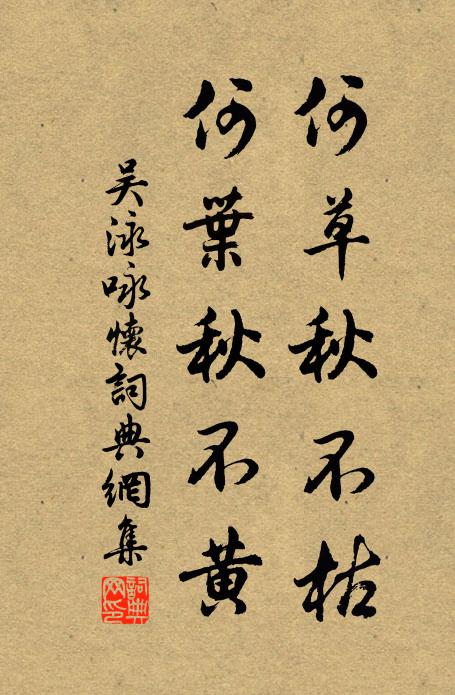 何草秋不枯
何葉秋不黃
吳泳咏懷詞典網集
詞典網印